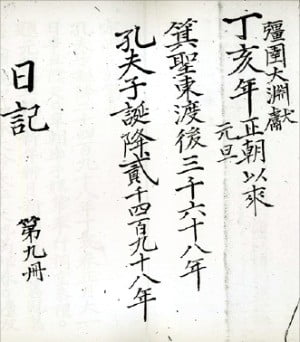 彊圉大淵獻
丁亥年正朝以來
元旦
箕聖東渡後三千六十八年
孔夫子誕降貳千四百九十八年
日記
第九冊